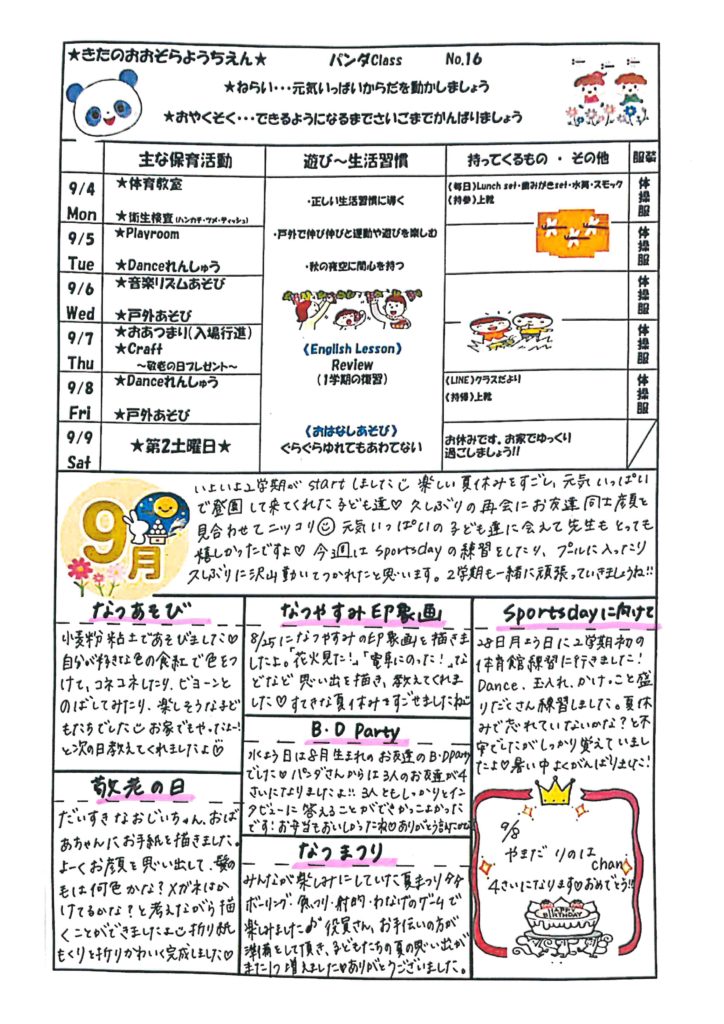 ★きたのおおぞらようちえん★ パンダClass No.16
★ねらい・・・元気いっぱいからだを動かしましょう
★おやくそく・・・できるようになるまでさいごまでがんばりましょう
主な保育活動 遊び～生活習慣 持ってくるもの ・ その他 服装
9/4 Mon
★体育教室
★衛生検査(ハンカチ・ツメ・ティッシュ)
9/5 Tue
★Playroom
★Danceれんしゅう
9/6 Wed
★音楽リズムあそび
★戸外あそび
9/7 Thu
★おあつまり(入場行進)
★Craft
～敬老の日プレゼント～
9/8 Fri
★Danceれんしゅう
★戸外あそび
9/9 Sat
★第2土曜日★
・正しい生活習慣に導く
・戸外で伸び伸びと運動や遊びを楽しむ
・秋の夜空に関心を持つ
《English Lesson》
Review
(1学期の復習)
《おはなしあそび》
ぐらぐらゆれてもあわてない
《毎日》Lunch set・歯みがきset・水筒・スモック
《持参》上靴
《LINE》クラスだより
《持帰》上靴
お休みです。お家でゆっくり
過ごしましょう!!
体操服
体操服
体操服
体操服
体操服
9月
いよいよ2学期が startしました 楽しい夏休みをすごし、元気いっぱい
で登園して来てくれた子ども達♡ 久しぶりの再会にお友達同士顔を
見合わせてニッコリ 元気いっぱいの子ども達に会えて先生もとっても
嬉しかったですよ♡ 今週は Sportsdayの練習をしたり、プールに入ったり
久しぶりに沢山動いてつかれたと思います。2学期も一緒に頑張っていきましょうね!!
なつあそび
小麦粉粘土であそびました♡
自分が好きな色の食紅で色をつ
けて、コネコネしたり、ビヨーンと
のばしてみたり、楽しそうな子ど
もたちでした お家でもやったよー!
と次の日教えてくれましたよ♡
敬老の日
だいすきなおじいちゃん、おば
あちゃんにお手紙を描きました。
よーくお顔を思い出して、髪の
毛は何色かな?メガネはか
けてるかな?と考えながら描
くことができましたよ 折り紙
もくりを折りかわいく完成しました♡
なつやすみEP象画
8/25になつやすみのEP象画を描きま
したよ。「花火見た!」「電車にのった!」な
どなど思い出を描き、教えてくれま
した♡すてきな夏休みをすごせましたね♡
B・D Party
水よう日は8月生まれのお友達のB・DParty
でした♡パンダさんからは3人のお友達が4
さいになりましたよ!! 3人ともしっかりとイン
タビューに答えることができかっこよかった
です!お弁当もおいしかったね♡ありがとう
なつまつり
みんなが楽しみにしていた夏まつり
ボーリング・魚つり・射的・わなげのゲームで
楽しみました♪ 役員さん、お手伝いの方が
準備をして頂き、子どもたちの夏の思い出が
また1つ増えました♡ありがとうございました。
Sportsdayに向けて
28日月よう日に2学期初の
体育館練習に行きました!
Dance、玉入れ、かけっこと盛
りだくさん練習しました。夏休
みで忘れていないかな?と不
安でしたがしっかり覚えていまし
たよ♡暑い中よくがんばりました!
9/8
やまだ りのは chan
4さいになります♡おめでとう!!
HAPPY BIRTHDAY